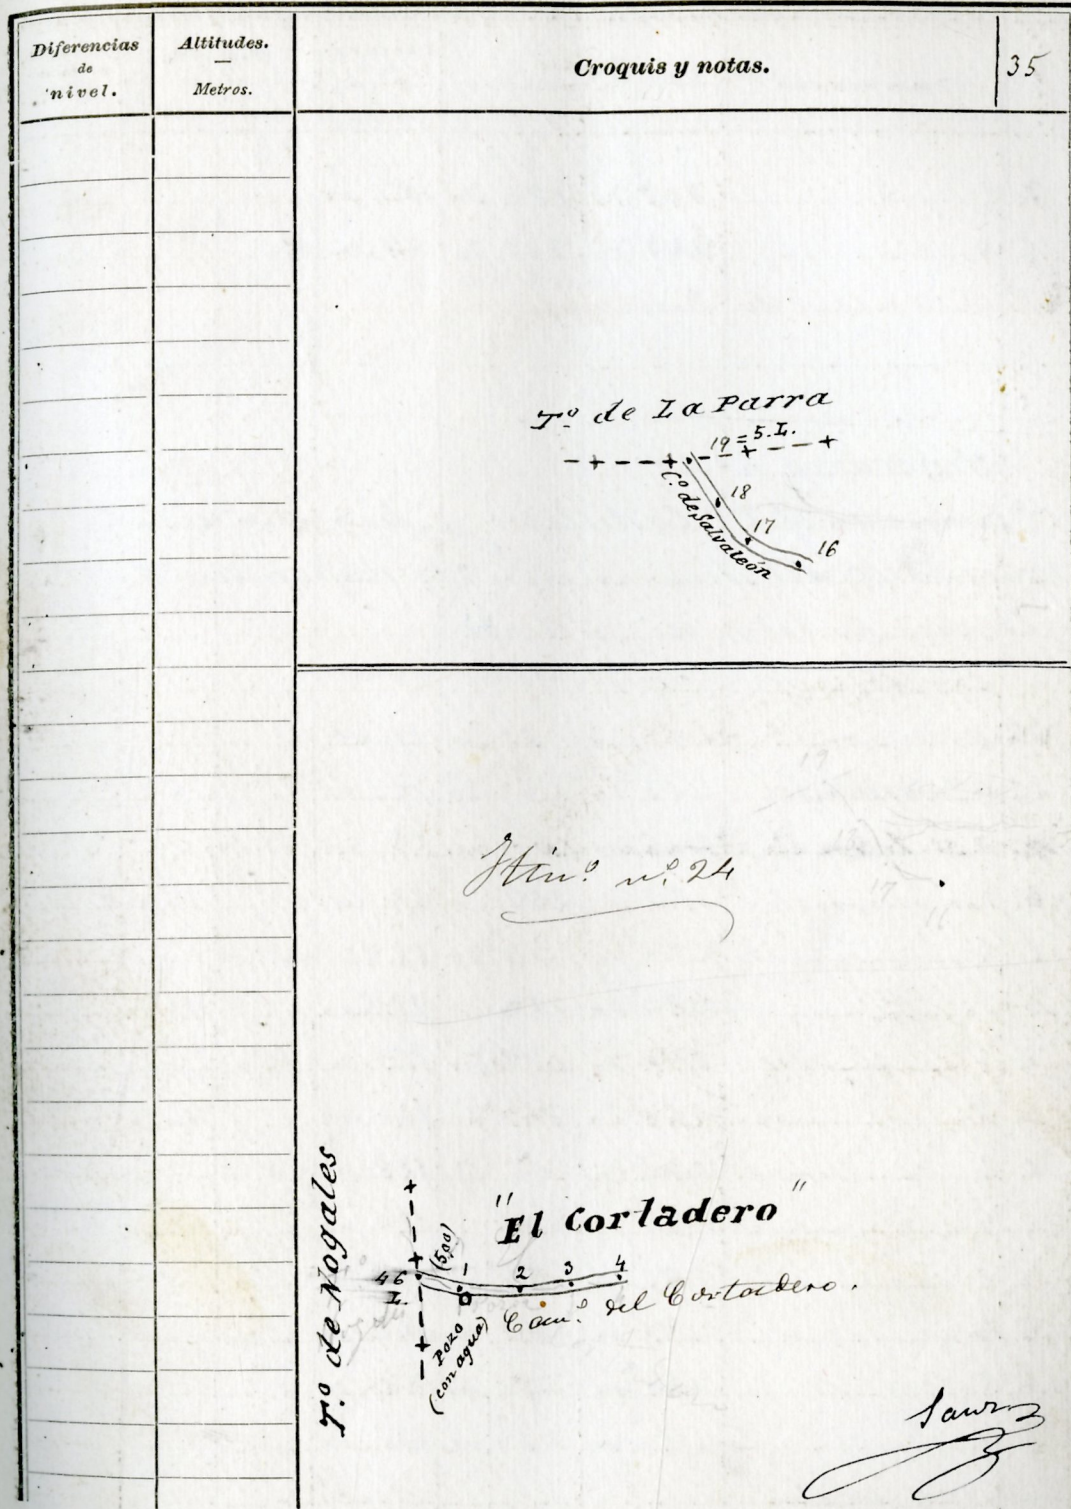 Diferencias
de
nivel.
Altitudes.
—
Metros.
Croquis y notas.
35
T.º de La Parra
19 = 5. L.
18
17
16
C.º de Salvaleón
Itin.º n.º 24
T.º de Nogales
"El Cortadero"
(5,00)
46
L.
1
2
3
4
Cam.º del Cortadero.
Pozo
(con agua)